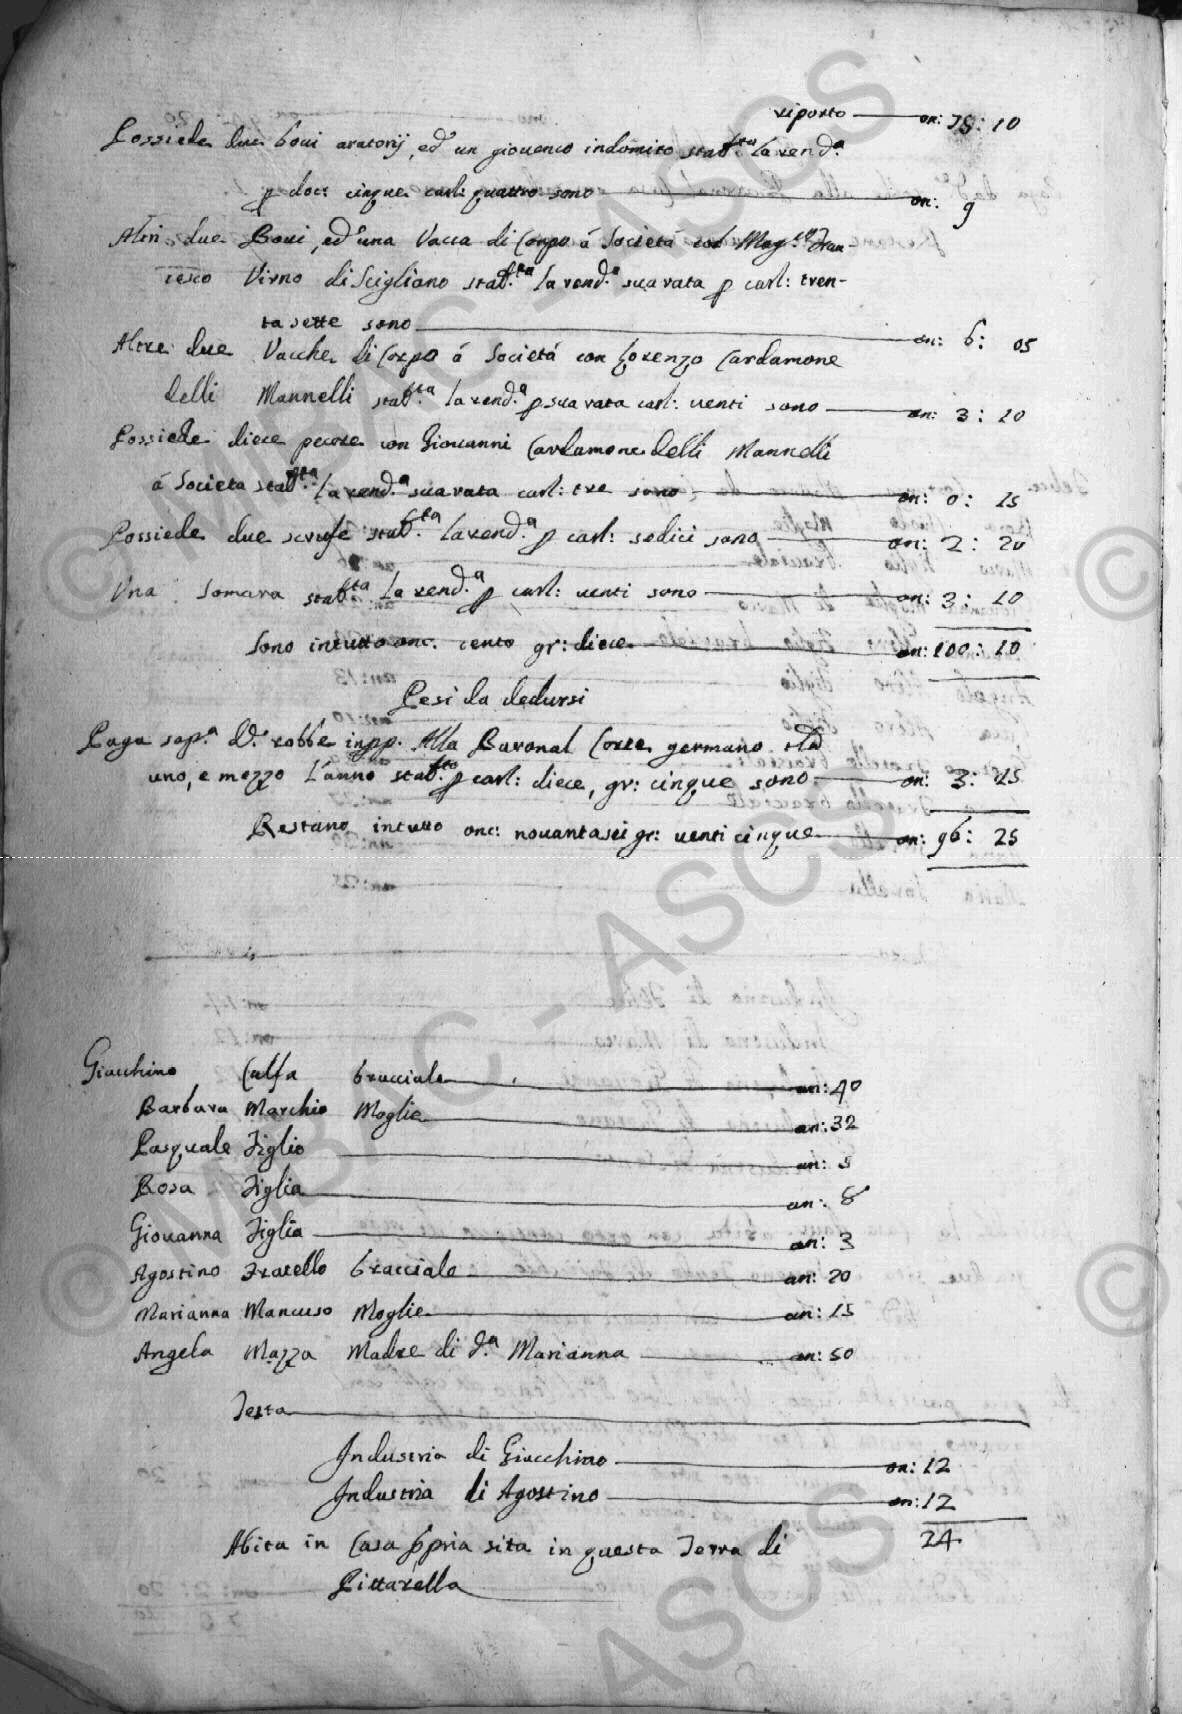 riporto on: 75: 10
Possiede due boui aratorij, ed un giouenco indomito stab.ta la rend.a
p doc: cinque carl: quattro sono on: 9
Altri due Boui, ed una Vacca di Corpo á Societá col Mag.co Fran-
cesco Virno di Scigliano stab.ta la rend.a sua rata p carl: tren-
ta sette sono on: 6: 05
Altre due Vacche di Corpo á Societá con Lorenzo Cardamone
delli Mannelli stab.ta la rend.a p sua rata carl: uenti sono on: 3: 10
Possiede diece pecore con Giouanni Cardamone delli Mannelli
á Societa stab.ta la rend.a sua rata carl: tre sono on: 0: 15
Possiede due scrofe stab.ta la rend.a p carl: sedici sono on: 2: 20
Una Somara stab.ta la rend.a p carl: uenti sono on: 3: 10
Sono intutto onc: cento gr: diece on: 100: 10
Pesi da dedursi
Paga sop.a d.e robbe Alla Baronal Corte germano
uno, e mezzo l'anno stab.to p carl: diece, gr: cinque sono on: 3: 15
Restano intutto onc: nouantasei gr: uenti cinque on: 96: 25
Giacchino Calfa bracciale an: 40
Barbara Marchio Moglie an: 32
Pasquale Figlio an: 5
Rosa Figlia an: 8
Giouanna Figlia an: 3
Agostino Fratello bracciale an: 20
Marianna Mancuso Moglie an: 15
Angela Mazza Madre di d.a Marianna an: 50
Testa
Industria di Giacchino on: 12
Industria di Agostino on: 12
24
Abita in Casa ppria sita in questa Terra di
Pittarella
© MIBAC - ASCS
© MIBAC - ASCS
©
©
ASCS